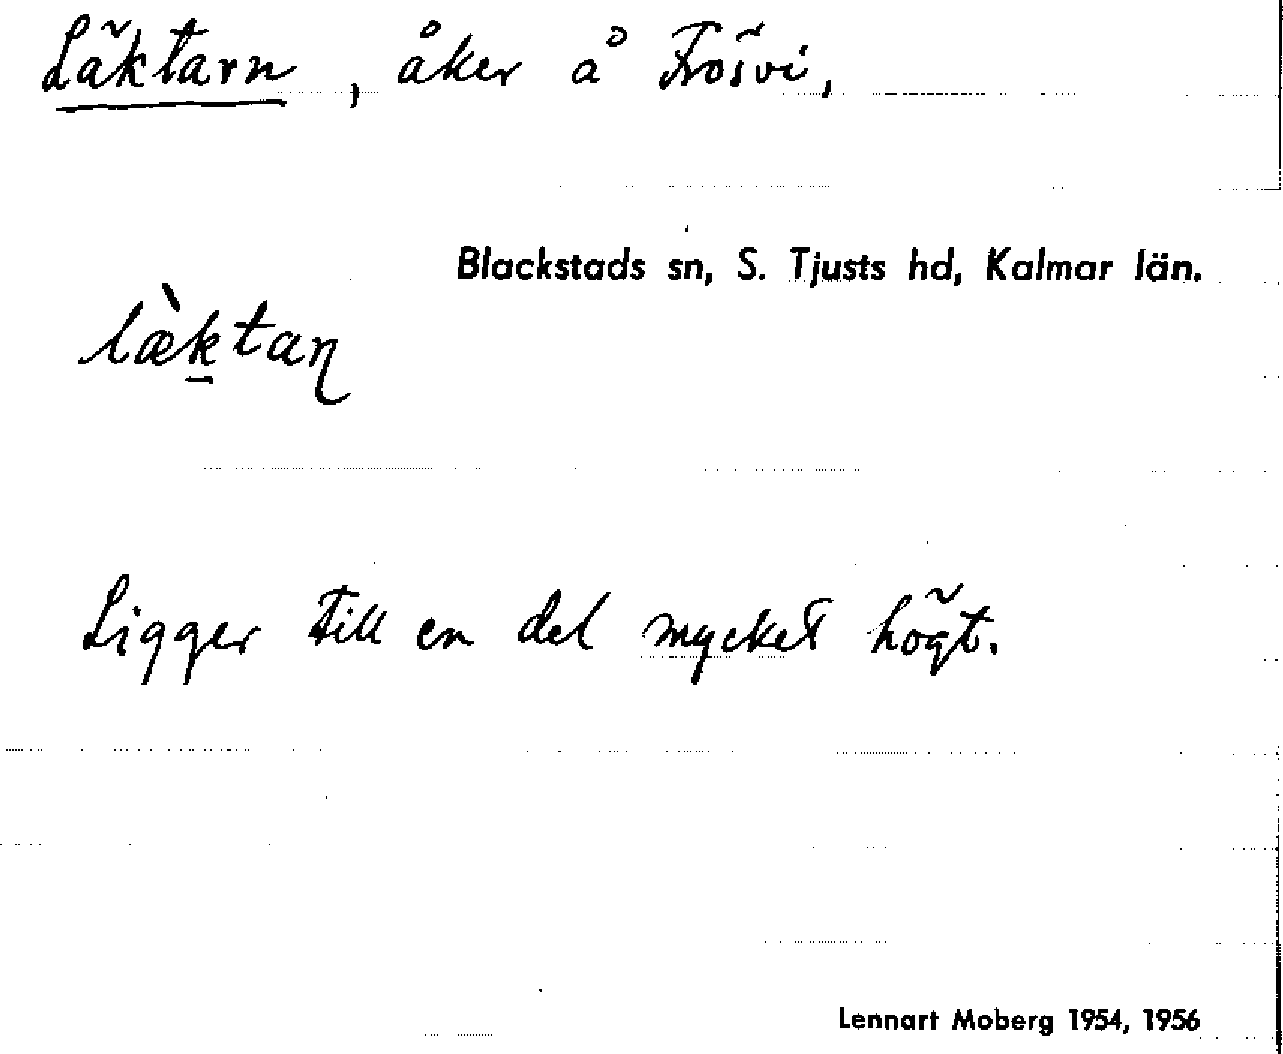 Läktarn, åker å Frösvi,
Blackstads sn, S. Tjusts hd, Kalmar län.
læ̀k̠taɳ
Ligger till en del mycket högt.
Lennart Moberg 1954, 1956